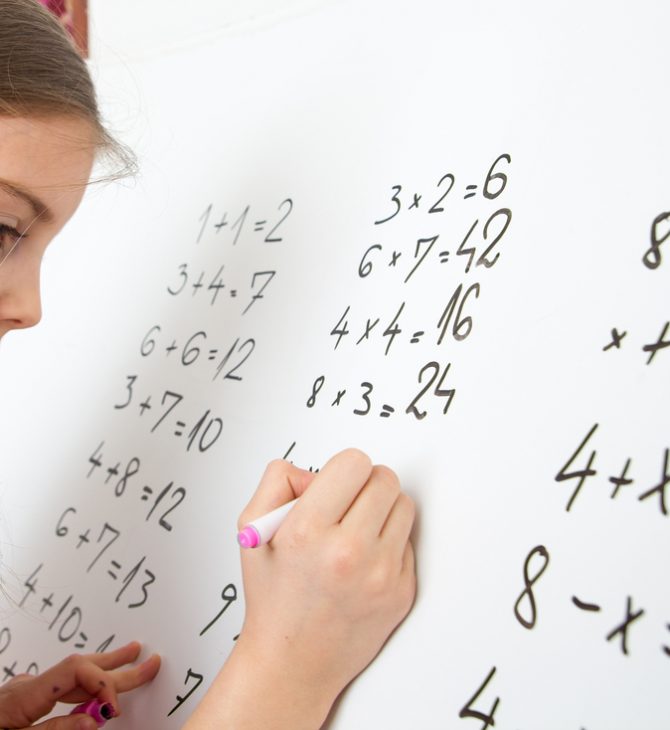 1+1=2
3+4=7
6+6=12
3+7=10
4+8=12
6+7=13
4+10=
3×2=6
6×7=42
4×4=16
8×3=24
9
7
8
×+
4+x
8-x=
4